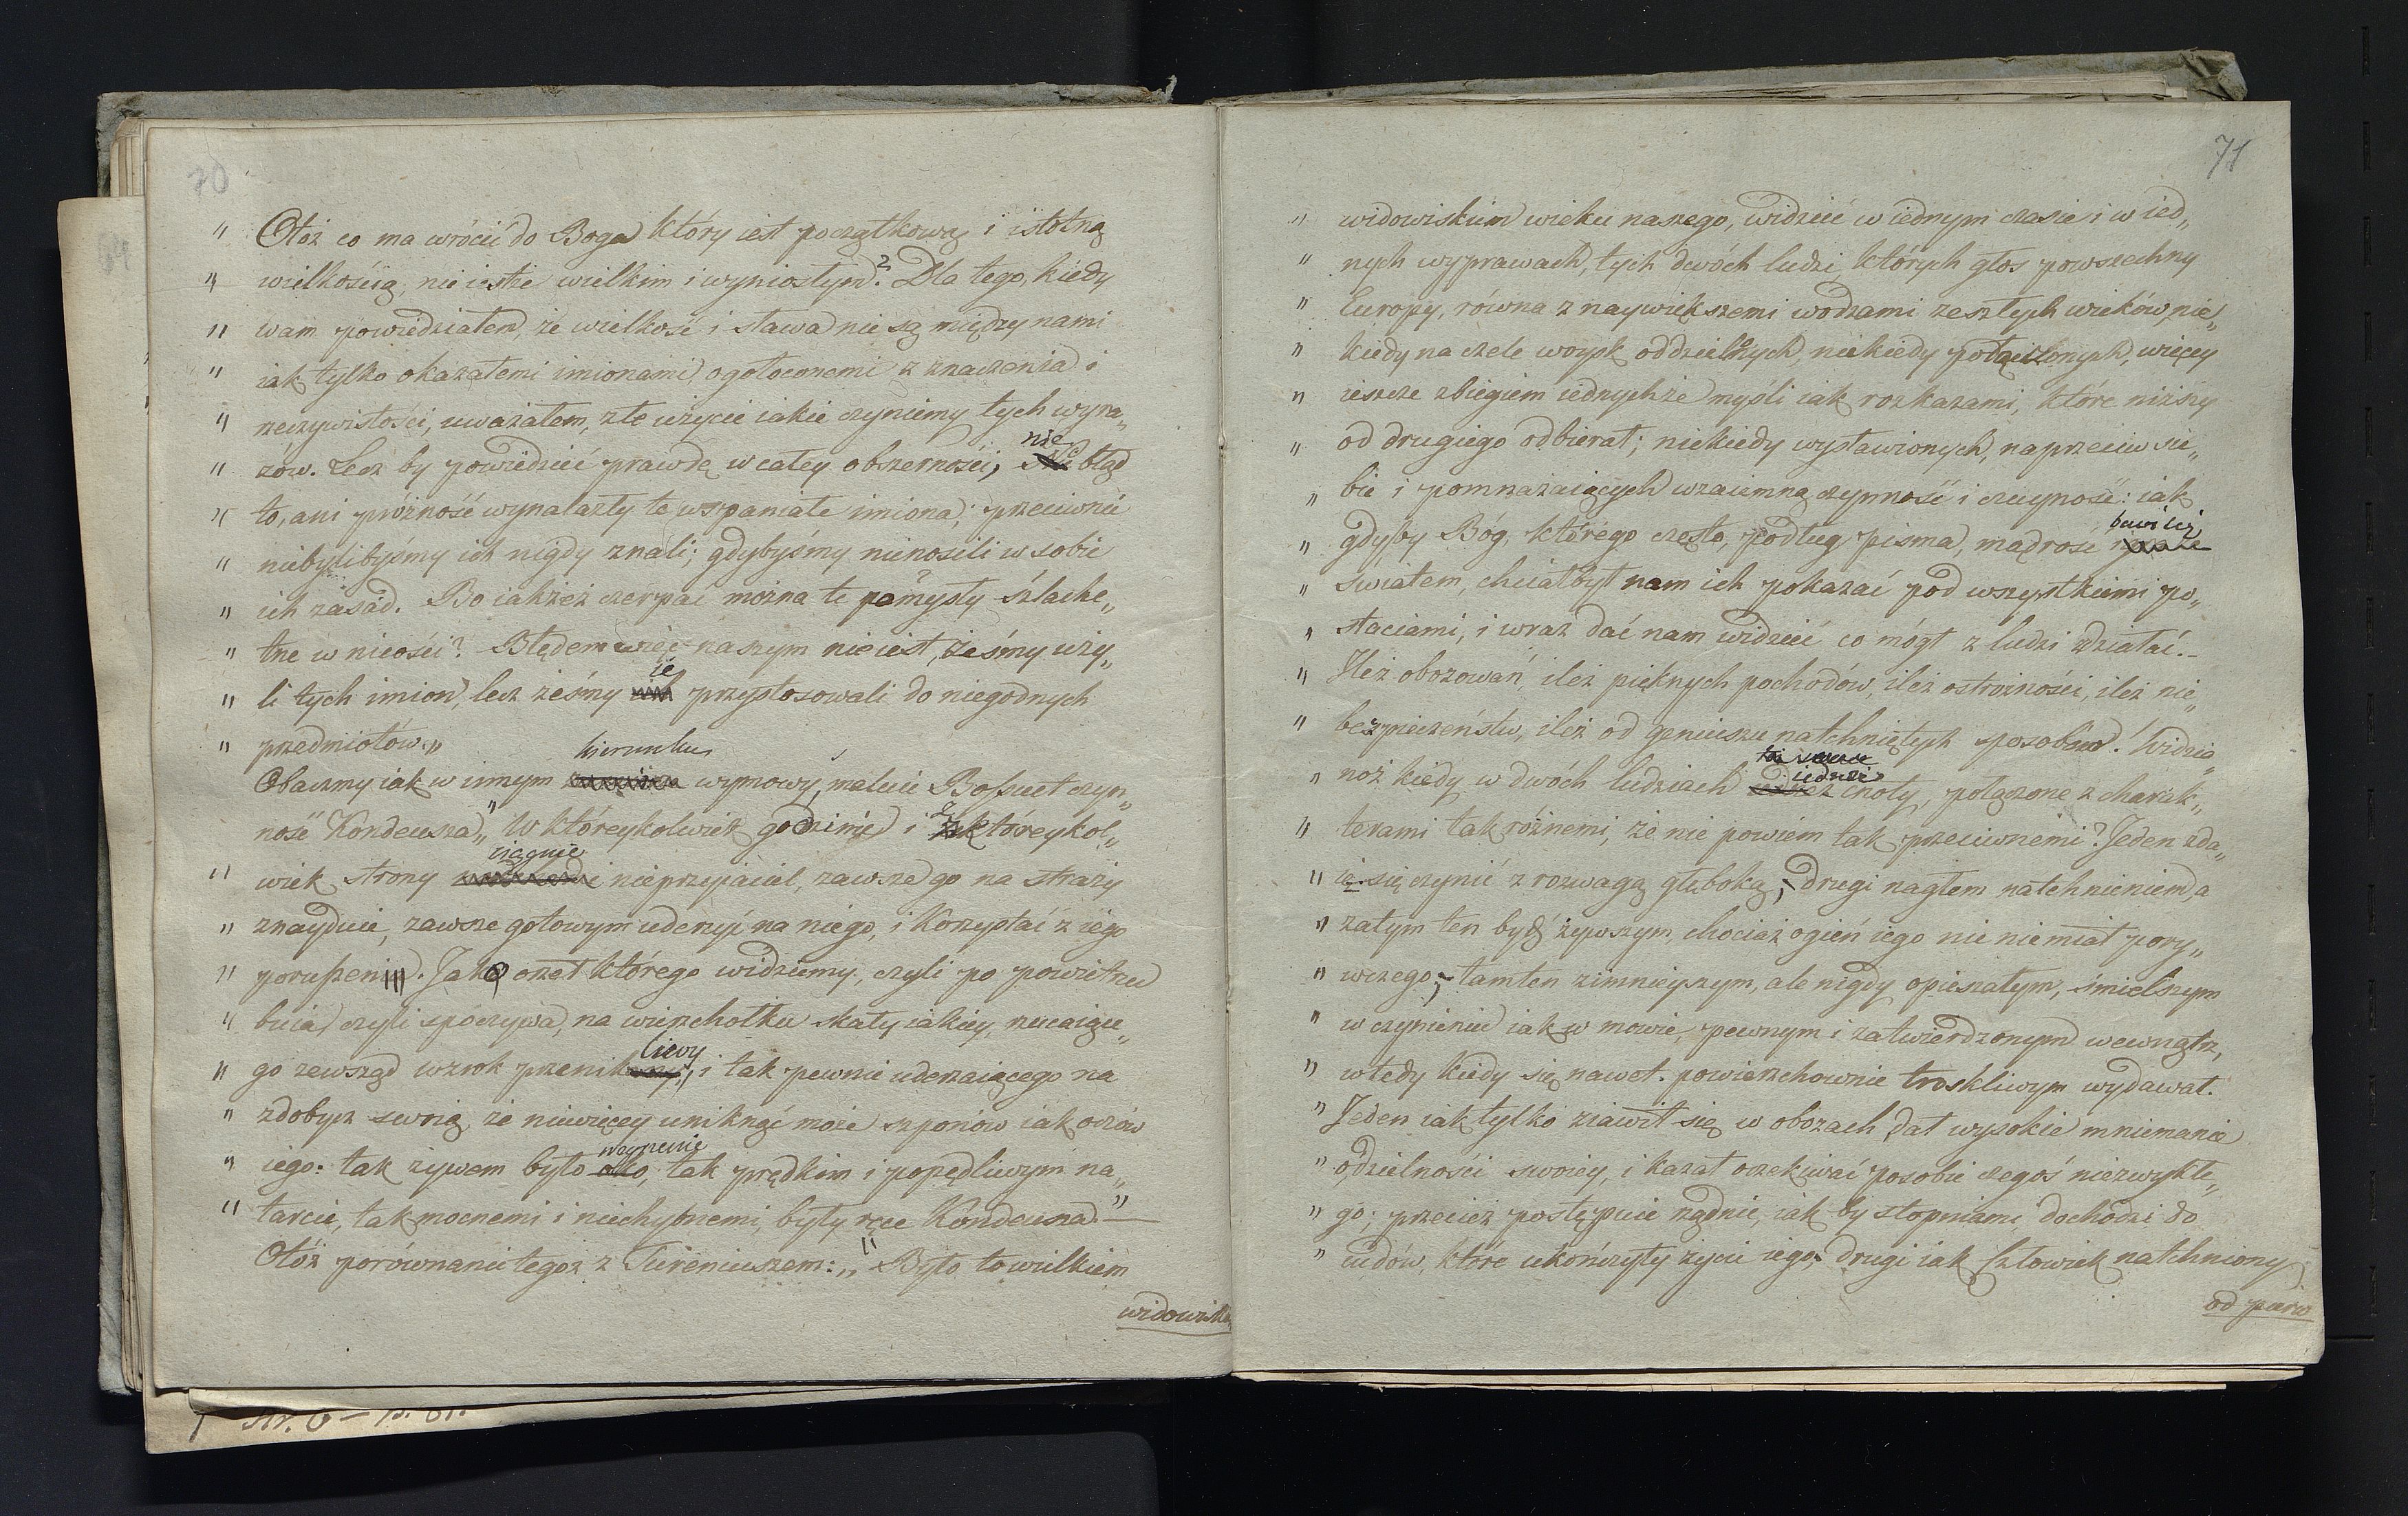 70
" Otóż co ma wrócić do Boga który iest początkową i istotną
" wielkością, nie iestże wielkim i wyniosłym? Dla tego, kiedy
" wam powiedziałem, że wielkość i sława nie są między nami
" iak tylko okazałemi imionami, ogołoconemi z znaczenia i
" rzeczywistości, uważałem, złe użycie iakie czyniemy tych wyra„
" zów. Lecz by powiedzieć prawdę w całey obszerności, nie błąd
" to, ani próżność wynalazły te wspaniałe imiona; przeciwnie
" niebylibyśmy ich nigdy znali; gdybyśmy nienosili w sobie
" ich zasad. Bo iakżeż czerpać można te pomysły szlache„
" tne w nicości? Błędem więc naszym nieiest, żeśmy uży„
" li tych imion, lecz żeśmy ie przystosowali do niegodnych
" przedmiotów."
Obaczmy iak w innym kierunku wymowy, maluie Bossuet czyn„
ność Kondeusza „ W któreykolwiek godzinie i z któreykol„
" wiek strony ciągnie nieprzyiaciel, zawsze go na straży
" znayduie, zawsze gotowym uderzyć na niego, i korzystać z iego
" poruszeń. Jak orzeł którego widziemy, czyli po powietrzu
" buia, czyli spoczywa, na wierzchołku skały iakiey, rzucaiące„
" go zewsząd wzrok przenikliwy, i tak pewnie uderzaiącego na
" zdobycz swoią, że niewięcey uniknąć może szponów iak oczów
" iego: tak żywem było weyrzenie, tak prędkim i popędliwszym na„
" tarcie, tak mocnemi i niechybnemi, były ręce Kondeusza." —
Otóż porównanie tegoż z Tiureniuszem: „ Było to wielkiem
widowisk
71
" widowiskiem wieku naszego, widzieć w iednym czasie i w ied„
" nych wyprawach, tych dwóch ludzi, których głos powszechny
" Europy, równa z naywiększemi wodzami zeszłych wieków, nie„
" kiedy na czele woysk oddzielnych, niekiedy połączonych, więcey
" ieszcze zbiegiem iednychże myśli iak rozkazami, które niższy
" od drugiego odbierał; niekiedy wystawionych, naprzeciw sie„
" bie i pomnażaiących wzaiemną czynność i czuyność: iak
" gdyby Bóg, którego często, podług pisma, mądrość bawi się
" światem, chciałbył nam ich pokazać pod wszystkiemi po„
" staciami, i wraz dać nam widzieć co mógł z ludzi zdziałać. –
" Ileż obozowań, ileż pięknych pochodów, ileż ostrożności, ileż nie„
" bezpieczeństw, ileż od geniuszu natchniętych sposobów! Widzia„
" noż kiedy w dwóch ludziach iedneż cnoty, połączone z charak„
" terami tak różnemi, że nie powiem tak przeciwnemi? Jeden zda„
" ie się czynić z rozwagą głęboką; drugi nagłem natchnieniem, a
" zatym ten był żywszym, chociaż ogień iego nic niemiał pory„
" wczego; tamten zimnieyszym, ale nigdy opieszałym, śmielszym
" w czynieniu iak w mowie, pewnym i zatwierdzonym wewnątrz,
" wtedy kiedy się nawet powierzchownie troskliwym wydawał.
" Jeden iak tylko ziawił się w obozach, dał wysokie mniemanie
" o dzielności swoiey, i kazał oczekiwać po sobie czegoś niezwykłe„
" go; przecież postępuie rządnie, iak by stopniami, dochodzi do
" cudów, które ukończyły życie iego; drugi iak Człowiek natchniony
od pierw